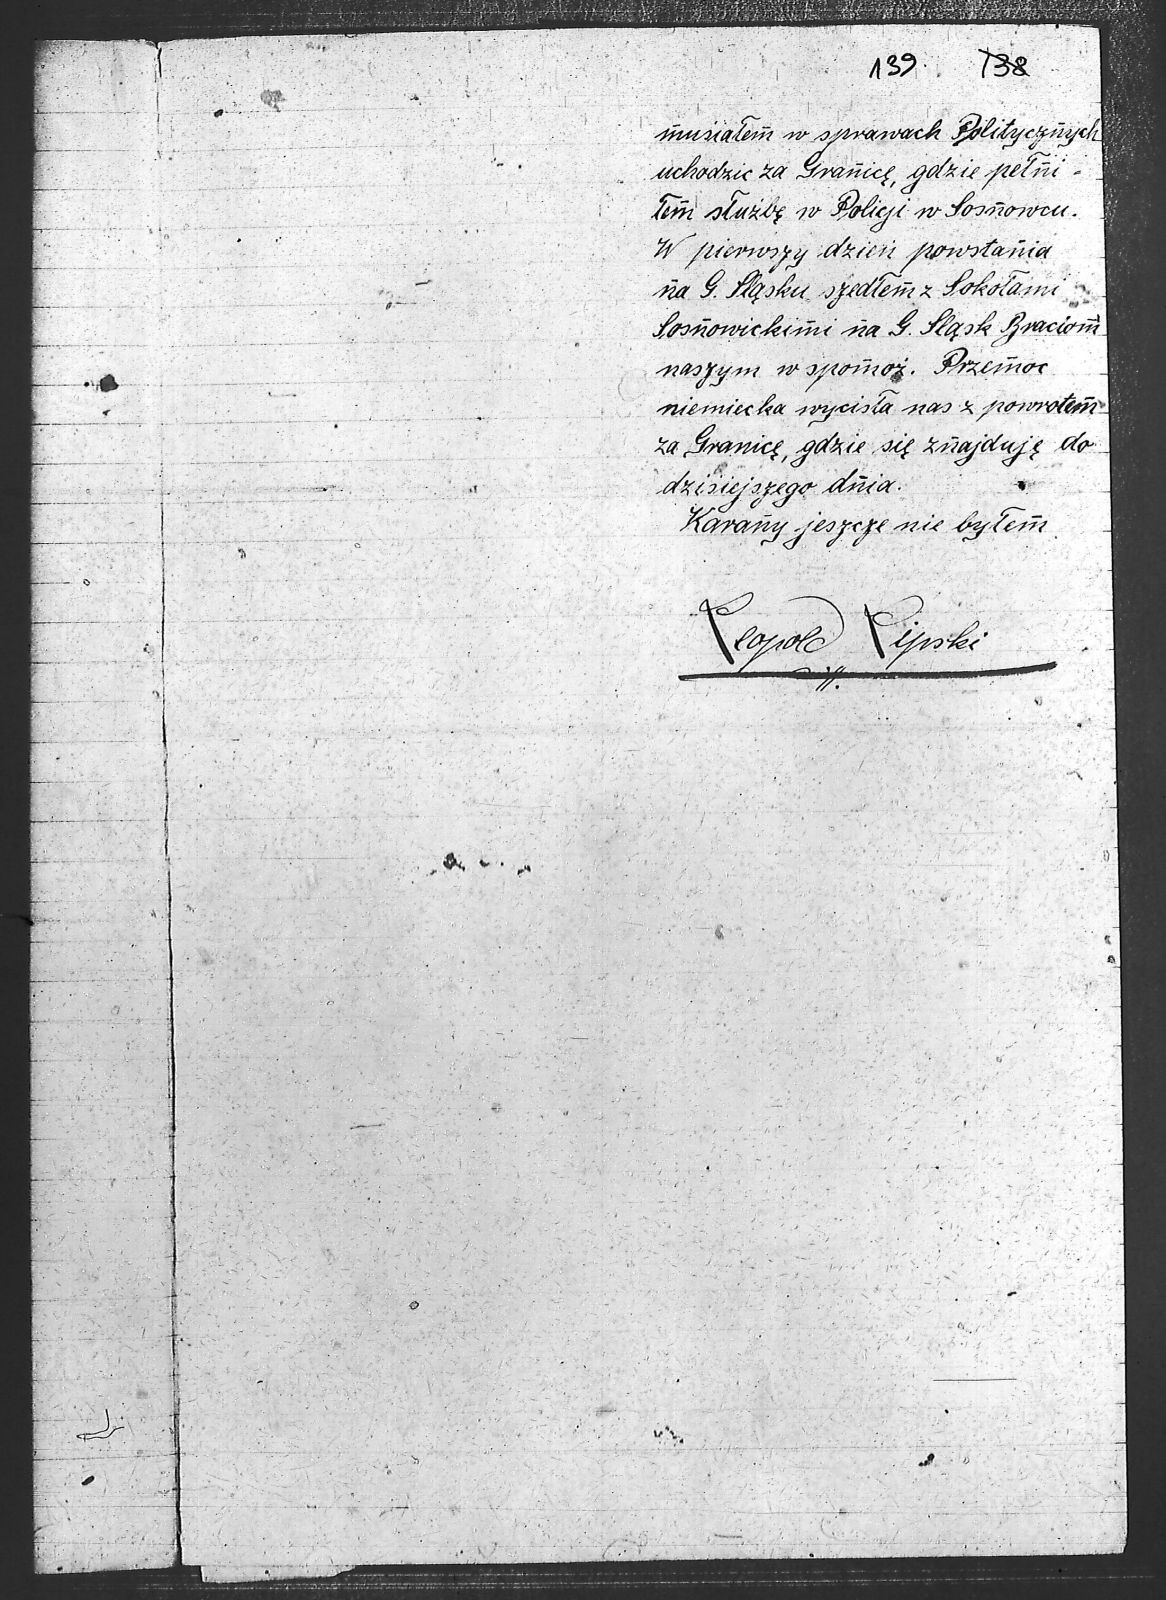 139. 138
musiałem w sprawach Politycznych
uchodzic za Granicę, gdzie pełni-
łem służbę w Policji w Sosnowcu.
W pierwszy dzień powstania
na G. Śląsku szedłem z Sokołami
Sosnowickimi na G. Śląsk Braciom
naszym w spomoż. Przemoc
niemiecka wycisła nas z powrotem
za Granicę, gdzie się znajduję do
dzisiejszego dnia.
Karany jeszcze nie byłem
Leopold Lipski